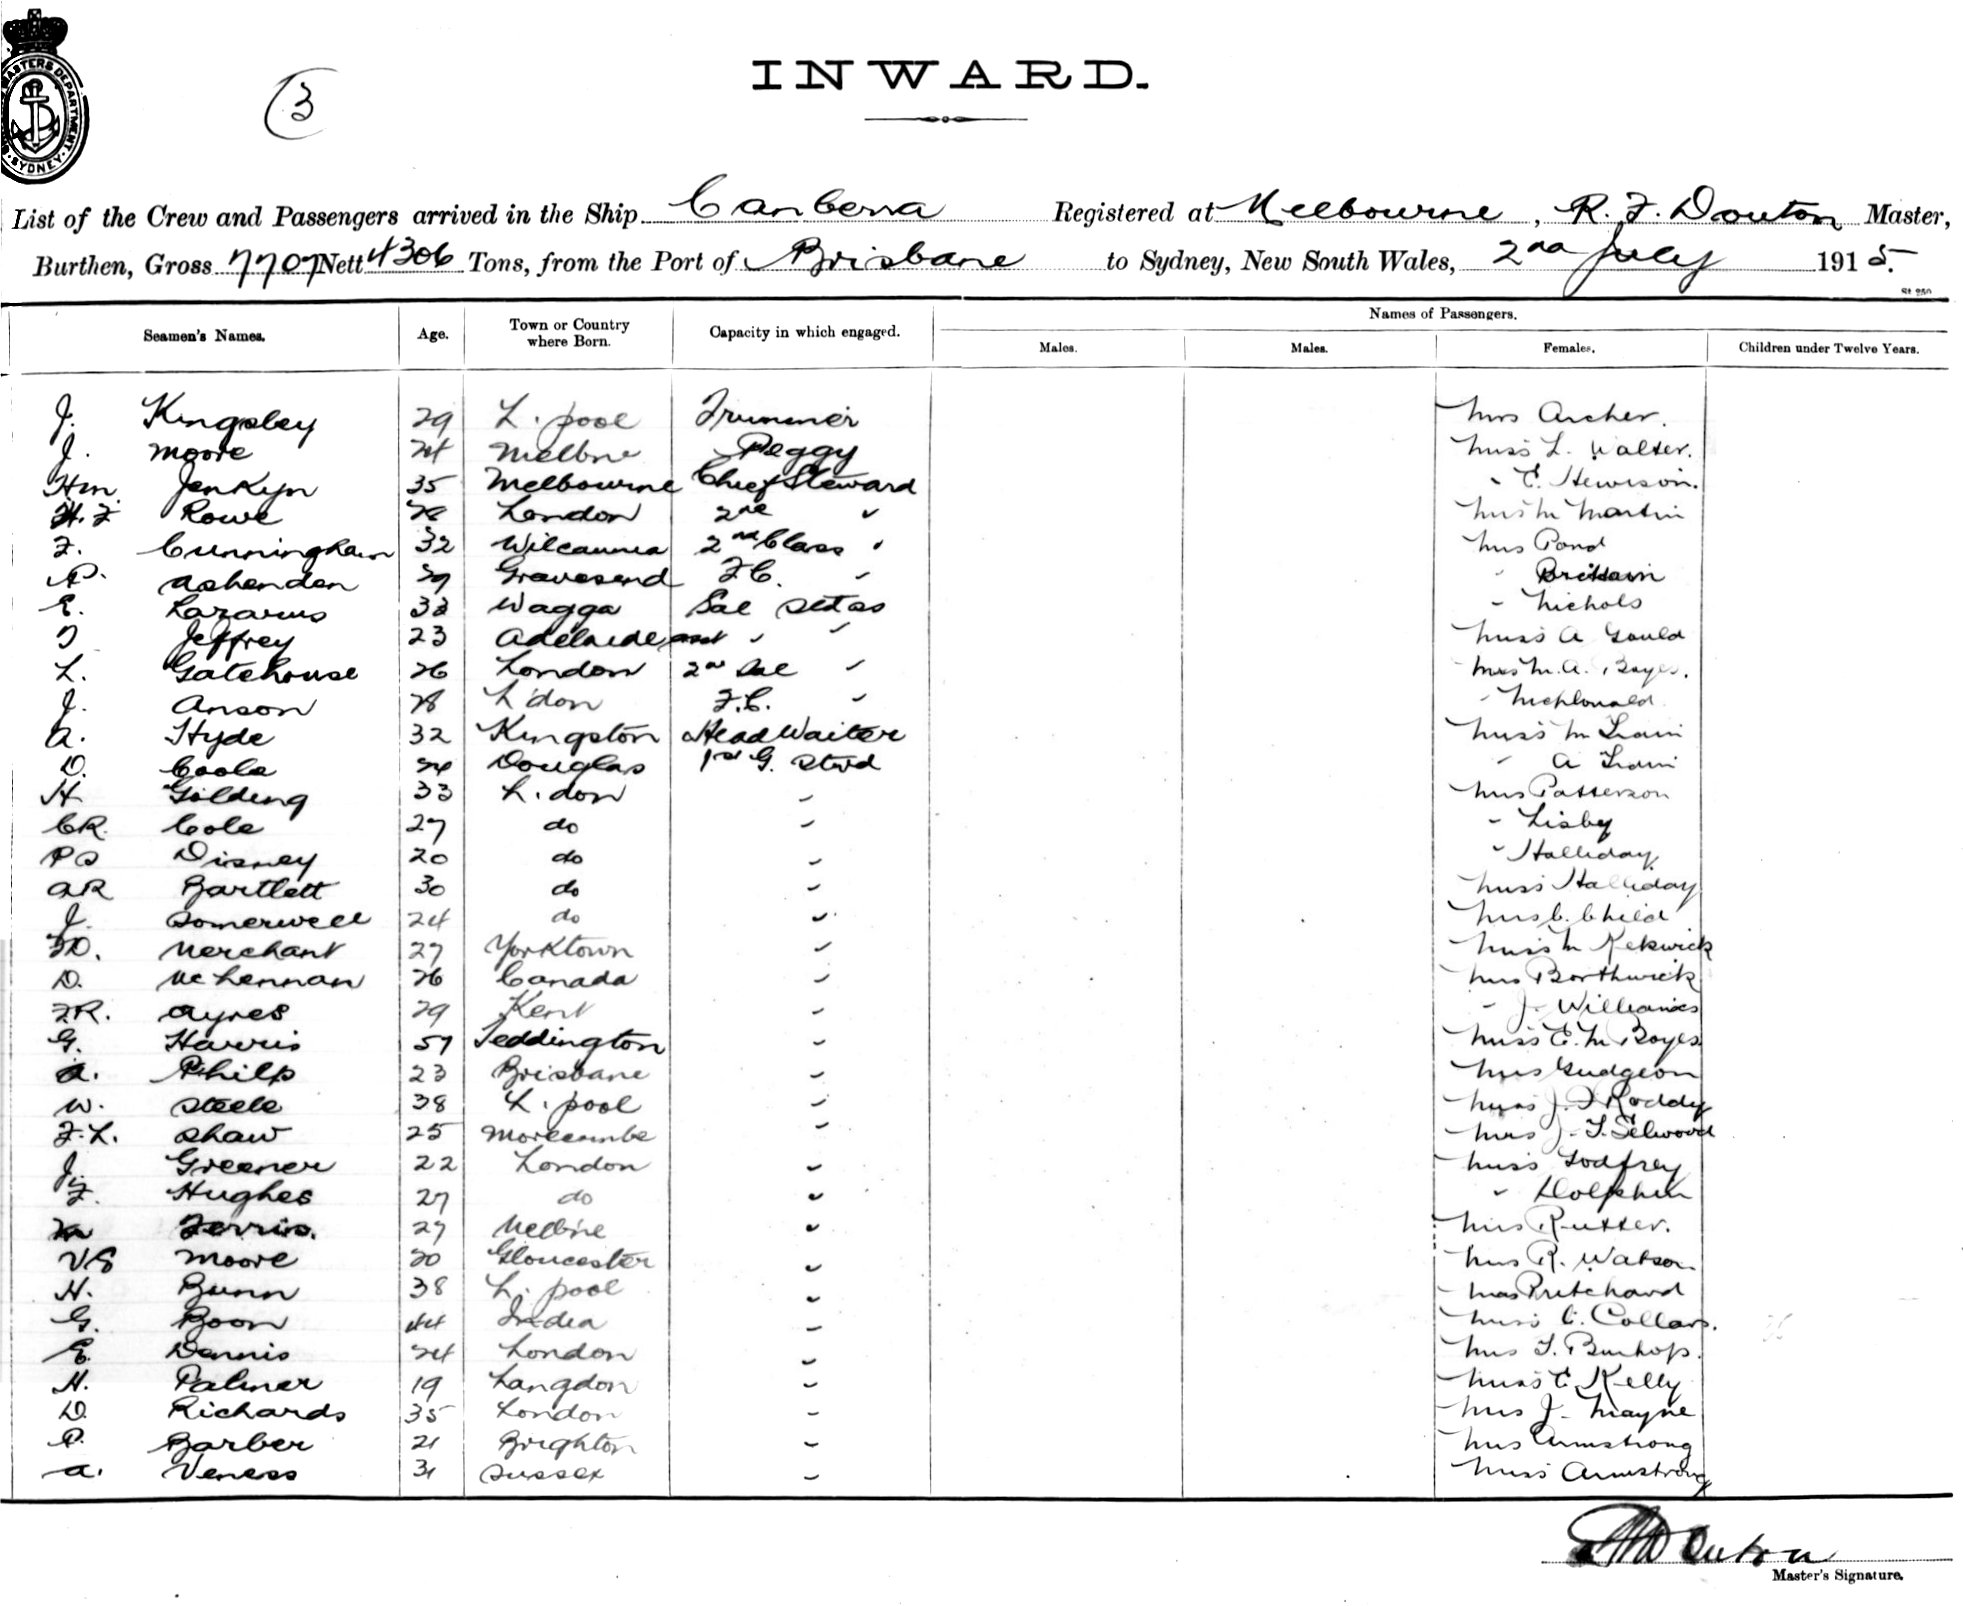 MASTERS DEPARTMENT SYDNEY
3
INWARD.
List of the Crew and Passengers arrived in the Ship Canberra Registered at Melbourne, R. F. Douton Master,
Burthen, Gross 7707 Nett 4306 Tons, from the Port of Brisbane to Sydney, New South Wales, 2nd July 1915.
St 250
Seamen's Names. Age. Town or Country where Born. Capacity in which engaged. Names of Passengers.
Males. Males. Females. Children under Twelve Years.
J. Kingsley 29 L. pool Trimmer Mrs Archer.
J. Moore 24 Melbne Peggy Miss L. Walter.
Hm. Jenkyn 35 Melbourne Chief Steward " E. Hewison.
H. F Rowe London 2nd " Miss M Martin
F. Cunningham 32 Wilcannia 2nd Class " Mrs Pond
P. Ashenden 29 Gravesend F.C. " " Brittain
E. Lazarus 33 Wagga Sal Stas " Nichols
T Jeffrey 23 Adelaide asst " " Miss A Gould
L. Gatehouse 26 London 2nd Sal " Mrs M. A. Boyes.
J. Anson 28 L'don F.C. " " McDonald
A. Hyde 32 Kingston Head Waiter Miss M
D. Coole Douglas 1st G. Stwd " A
H Golding 33 L. don " Mrs Patterson
CR. Cole 27 do " " Lisby
PS Disney 20 do " " Halliday
AR Bartlett 30 do " Miss Halliday
J. Somerwell 24 do " Mrs C. Child
Merchant 27 Yorktown " Miss M Kekwick
D. McLennan 26 Canada " Mrs Borthwick
F.R. Ayres 29 Kent " " J. Williams
G. Harris 57 Teddington " Miss E. M Boyes
A. Philp 23 Brisbane " Mrs Gudgeon
W. Steele 38 L. pool " J. Roddy
F. L. Shaw 25 Morecambe " Mrs J. T. Selwood
J. Greener 22 London " Miss Godfrey
F. Hughes 27 do " " Dolphin
Ferris. 27 Melbne " Mrs Rutter.
VS Moore 20 Gloucester " Mrs R. Watson
H. Bunn 38 L. pool " Mrs Pritchard
G. Boon 44 India " Miss C. Collars.
E. Dennis 24 London " Mrs T. Burhop.
H. Palmer 19 Langdon " Miss E. Kelly
D. Richards 35 London " Mrs J. Mayne
P. Barber 21 Brighton " Mrs Armstrong
A. Veness 31 Sussex " Miss Armstrong
Douton
Master's Signature.